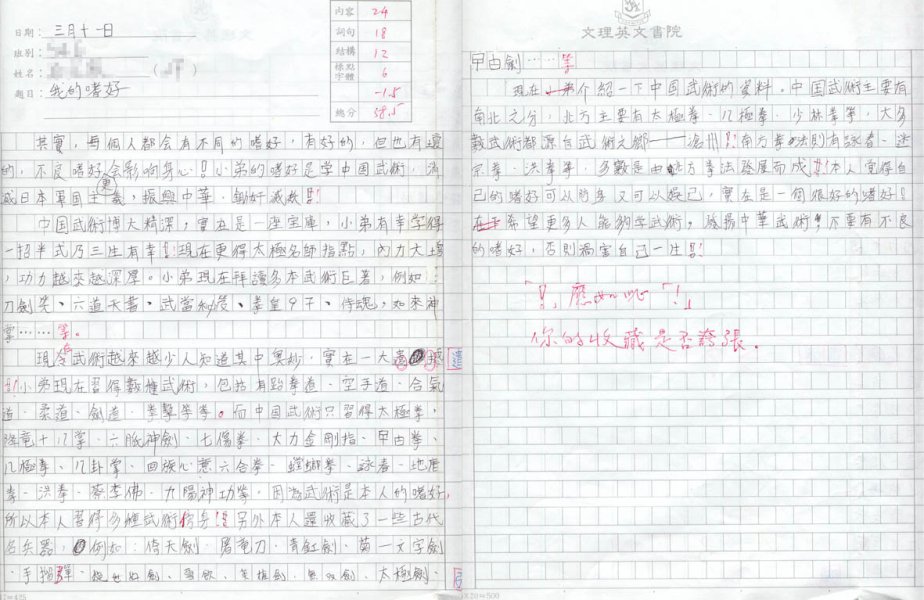 日期：三月十一日
班別：
姓名：
題目：我的嗜好
內容 24
詞句 18
結構 12
標點字體 6
-1.5
總分 58.5
其實，每個人都会有不同的嗜好，有好的，但也有壞
的，不良嗜好会影响身心！小弟的嗜好是学中国武術，消
滅日本軍国主義，振興中華，鋤奸滅族！
中国武術博大精深，實在是一座宝庫，小弟有幸学得
一招半式乃三生有幸！現在更得太極名師指點，內力大增
，功力越來越深厚。小弟現在拜讀多本武術巨著，例如：
刀劍笑、六道天書、武當、拳皇97、侍魂，如來神
掌……等。
現今武術越來越少人知道其中奧妙，實在一大遺
遺
小弟現在習得數種武術，包括有跆拳道、空手道、合氣
道、柔道、劍道、拳擊等等。而中国武術只習得太極拳，
降竜十八掌、六脈神劍、七傷拳、大力金剛指、早由拳、
八極拳、八卦掌、回族心意六合拳、螳螂拳、詠春、地唐
拳、洪拳、蔡李佛、九陽神功等，因為武術是本人的嗜好，
所以本人習得多種武術！另外本人還收藏了一些古代
名兵器，例如：倚天劍、屠竜刀、青釭劍、莫一文字劍
、手榴彈、雪飲、無双劍、太極劍、
文理英文書院
早由劍……等
現在介紹一下中国武術的資料，中国武術主要有
南北之分，北方主要有太極拳、八極拳、少林拳等，大多
數武術都源自武術之鄉——滄州！南方拳法則有詠春、迷
宗拳、洪拳等，多數是由北方拳法發展而成！本人覺得自
己的嗜好可以防身又可以娛己，實在是一個很好的嗜好！
希望更多人能夠学武術，發揚中華武術，不要有不良
的嗜好，否則禍害自己一生！
「！，應如此「！」
你的收藏是否誇張。
20×20=500